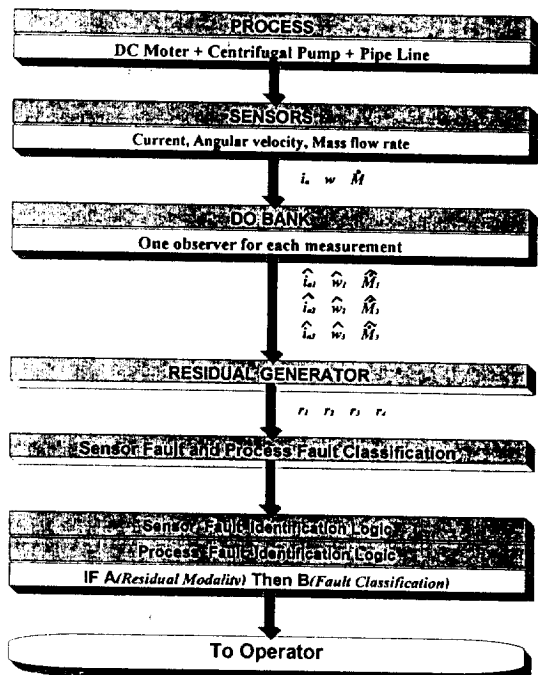 PROCESS
DC Moter + Centrifugal Pump + Pipe Line
SENSORS
Current, Angular velocity, Mass flow rate
i_a w Ṁ
DO BANK
One observer for each measurement
î_a1 ŵ_1 M̂_1
î_a2 ŵ_2 M̂_3
î_a3 ŵ_3 M̂_3
RESIDUAL GENERATOR
r_1 r_2 r_3 r_4
Sensor Fault and Process Fault Classification
Sensor Fault Identification Logic
Process Fault Identification Logic
IF A(Residual Modality) Then B(Fault Classification)
To Operator